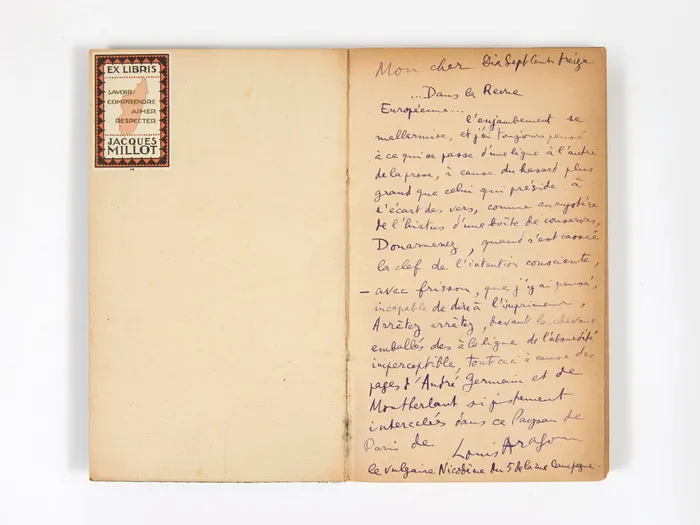 EX LIBRIS
SAVOIR
COMPRENDRE
AIMER
RESPECTER
JACQUES
MILLOT
Mon cher Dix Sept Cent treize
...Dans la Revue
Européenne...
l'enjambement se
mallarmise, et j'ai toujours pensé
à ce qui se passe d'une ligne à l'autre
de la prose, à cause du hasard plus
grand que celui qui préside à
l'écart des vers, comme au mystère
de l'hiatus d'une boîte de conserves,
Douarnenez, quand s'est cassée
la clef de l'intention consciente,
— avec frisson, que j'y ai pensé,
incapable de dire à l'imprimeur,
Arrêtez arrêtez, devant les chevaux
emballés des à la ligne de l'absurdité
imperceptible, tout ceci à cause des
pages d'André Germain et de
Montherlant si justement
intercalés dans ce Paysan de
Paris de Louis Aragon
le vulgaire Nicodème du 5 de la rue Campagne.